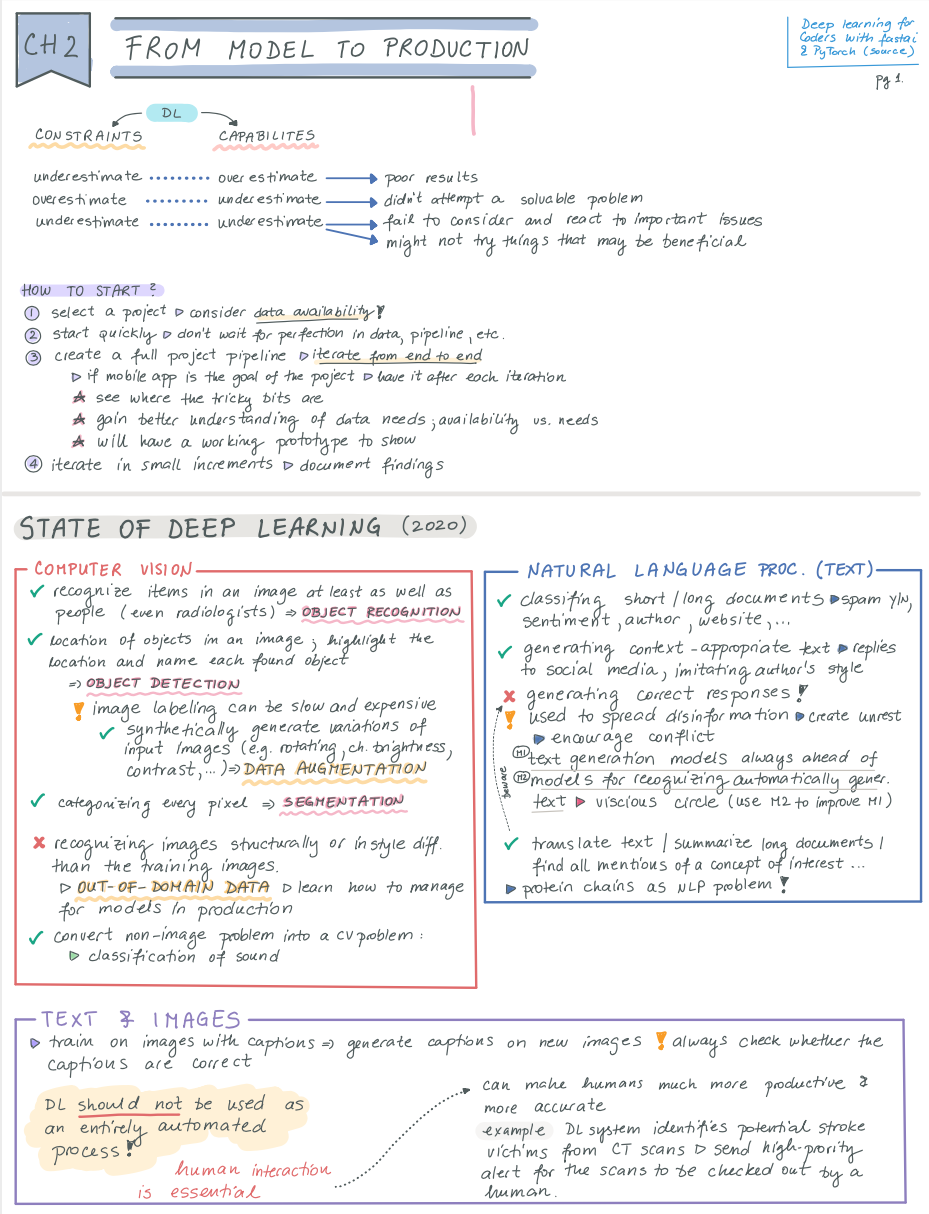 CH 2
FROM MODEL TO PRODUCTION
Deep learning for
Coders with fastai
& PyTorch (source)
pg 1.
DL
CONSTRAINTS CAPABILITES
underestimate over estimate poor results
overestimate underestimate didn't attempt a soluvable problem
underestimate underestimate fail to consider and react to important issues
might not try things that may be beneficial
HOW TO START?
1 select a project ▷ consider data availability!
2 start quickly ▷ don't wait for perfection in data, pipeline, etc.
3 create a full project pipeline ▷ iterate from end to end
▷ if mobile app is the goal of the project ▷ have it after each iteration
see where the tricky bits are
gain better understanding of data needs; availability vs. needs
will have a working prototype to show
4 iterate in small increments ▷ document findings
STATE OF DEEP LEARNING (2020)
COMPUTER VISION
✓ recognize items in an image at least as well as
people (even radiologists) ⇒ OBJECT RECOGNITION
✓ location of objects in an image; highlight the
location and name each found object
⇒ OBJECT DETECTION
! image labeling can be slow and expensive
✓ synthetically generate variations of
input images (e.g. rotating, ch. brightness,
contrast,...) ⇒ DATA AUGMENTATION
✓ categorizing every pixel ⇒ SEGMENTATION
✗ recognizing images structurally or in style diff.
than the training images.
▷ OUT-OF-DOMAIN DATA ▷ learn how to manage
for models in production
✓ convert non-image problem into a CV problem:
▷ classification of sound
NATURAL LANGUAGE PROC. (TEXT)
✓ classifing short/long documents ▶ spam Y/N,
sentiment, author, website,...
✓ generating context-appropriate text ▶ replies
to social media, imitating author's style
✗ generating correct responses!
! used to spread disinformation ▶ create unrest
▶ encourage conflict
M1 text generation models always ahead of
M2 models for recognizing automatically gener.
text ▷ viscious circle (use M2 to improve M1)
beware
✓ translate text / summarize long documents /
find all mentions of a concept of interest ...
▶ protein chains as NLP problem!
TEXT & IMAGES
▷ train on images with captions ⇒ generate captions on new images ! always check whether the
captions are correct
DL should not be used as
an entirely automated
process!
human interaction
is essential
can make humans much more productive &
more accurate
example DL system identifies potential stroke
victims from CT scans ▷ send high-prority
alert for the scans to be checked out by a
human.